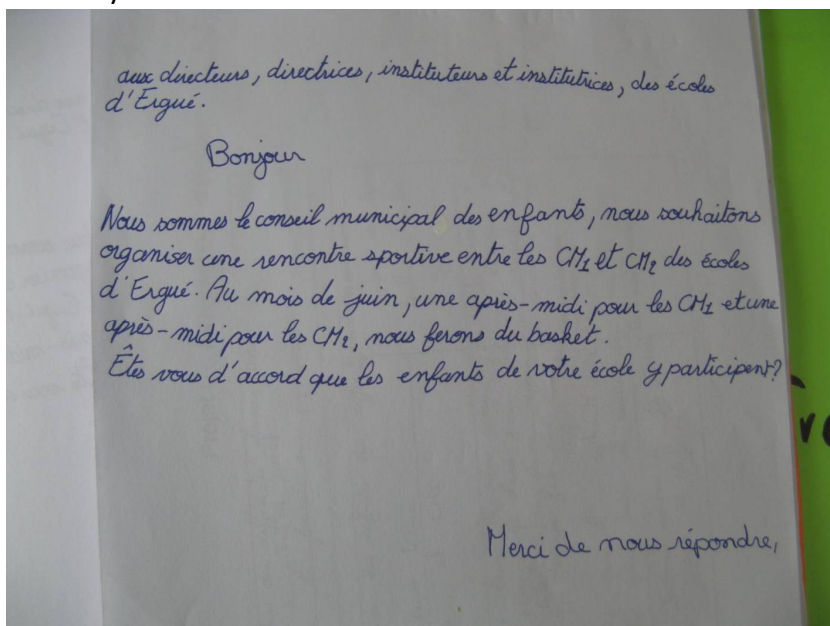 aux directeurs, directrices, instituteurs et institutrices, des écoles
d'Ergué.
Bonjour
Nous sommes le conseil municipal des enfants, nous souhaitons
organiser une rencontre sportive entre les CM1 et CM2 des écoles
d'Ergué. Au mois de juin, une après-midi pour les CM1 et une
après-midi pour les CM2, nous ferons du basket.
Êtes vous d'accord que les enfants de votre école y participent?
Merci de nous répondre,